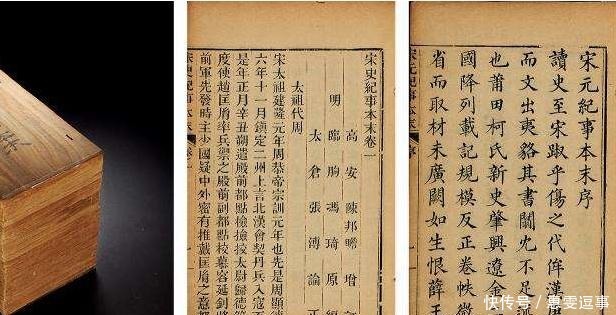 宋元紀事本末序
讀史至宋踧乎傷之代侔漢
而文出夷貉其書闒宂不足
也莆田柯氏新史肇興遼金
國降列載記規模反正卷帙微
省而取材未廣闕如生恨薛王
宋元紀事本末 序
宋史紀事本末卷一
高安陳邦瞻增
明 臨朐馮琦原編
太倉張溥論正
太祖代周
宋太祖建隆元年周恭帝宗訓元年也先是周顯德
六年十一月鎮定二州上言北漢會契丹兵入寇
是年正月辛丑朔遣殿前都點檢檢校太尉歸德
度使趙匡胤率兵禦之殿前副都點檢慕容延釗將
前軍先發時主少國疑中外密有推戴匡胤之意都
宋史紀事本末
快传号／惠雯逗事